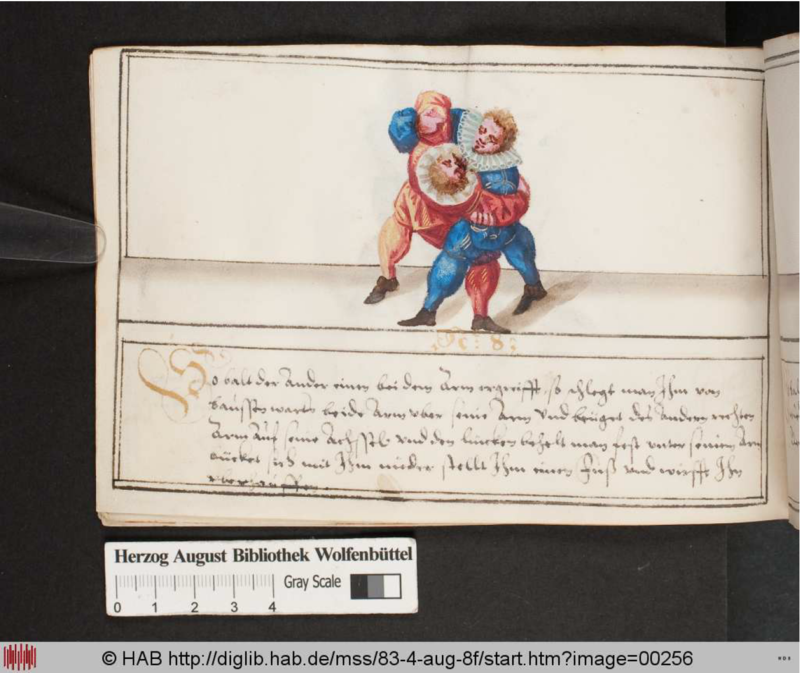 N: 8:
So balt der Ander einen bei dem Arm ergreifft so schlegt man Ihm von
daussen warts beide Arm vber seine Arm vnd beüget des Andern rechten
Arm Auf seine Achsstl vnd den lincken behelt man fest vnter seinem Arm
bücket sich mit Ihm nieder stellt Ihm einen Fuß vnd wirfft Ihn
vberhauffen.
Herzog August Bibliothek Wolfenbüttel
Gray Scale
0 1 2 3 4
© HAB http://diglib.hab.de/mss/83-4-aug-8f/start.htm?image=00256